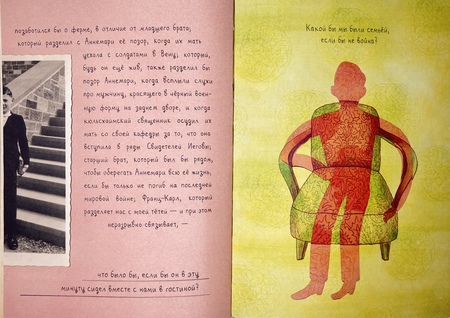 позаботился бы о ферме, в отличие от младшего брата;
который разделил с Аннемари её позор, когда их мать
уехала с солдатами в Вену; который,
будь он ещё жив, также разделил бы
позор Аннемари, когда всплыли слухи
про мужчину, красящего в чёрный воен-
ную форму на заднем дворе, и когда
кюльсхаймский священник осудил их
мать со своей кафедры за то, что она
вступила в ряды Свидетелей Иеговы;
старший брат, который был бы рядом,
чтобы оберегать Аннемари всю её жизнь,
если бы только не погиб на последней
мировой войне; Франц-Карл, который
разделяет нас с моей тётей — и при этом
неразрывно связывает, —
что было бы, если бы он в эту
минуту сидел вместе с нами в гостиной?
Какой бы мы были семьёй,
если бы не война?